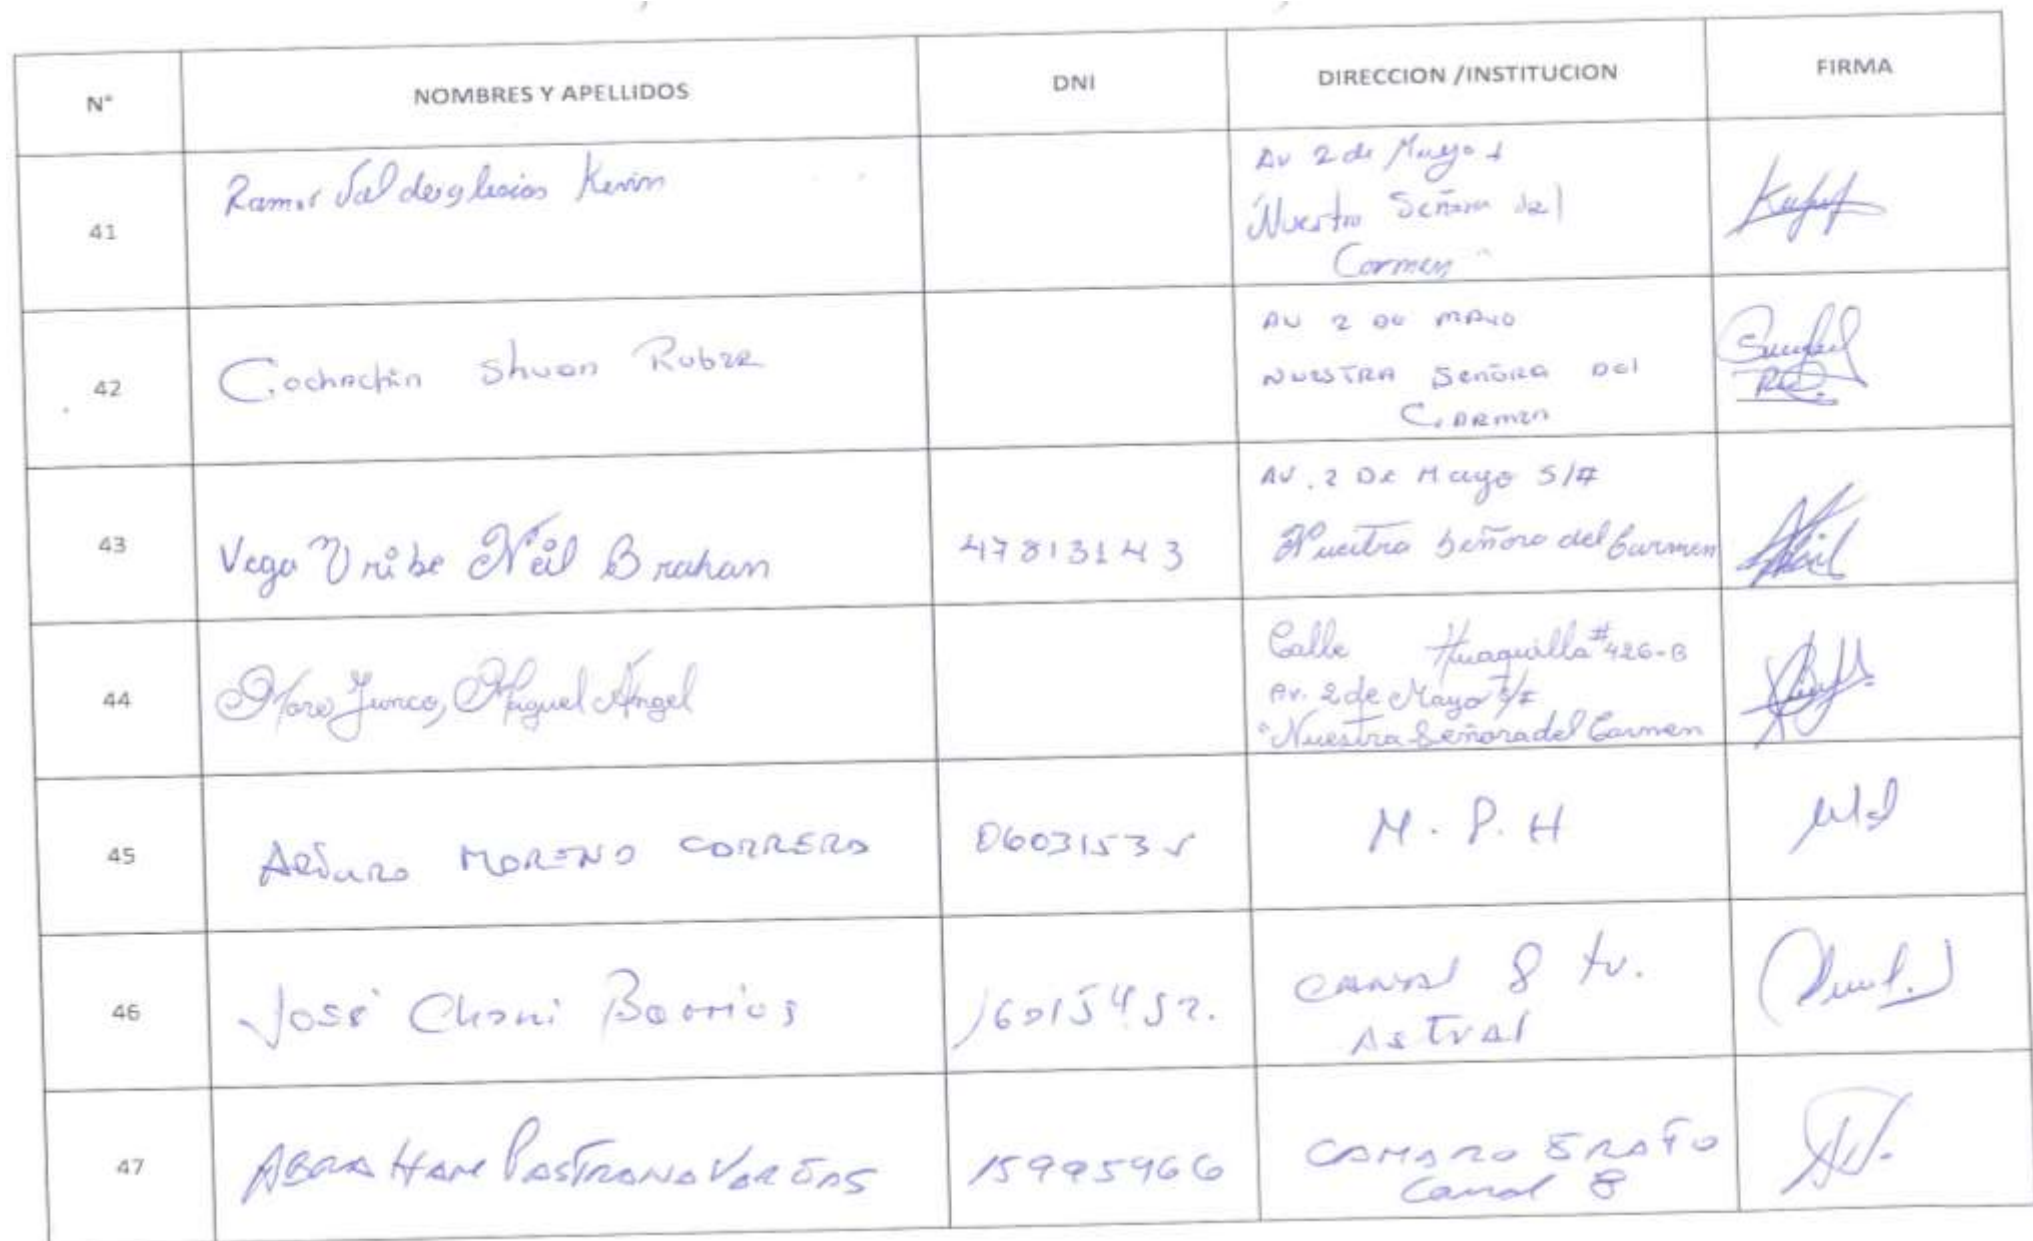 N° NOMBRES Y APELLIDOS DNI DIRECCION /INSTITUCION FIRMA
41 Ramos Valdeiglesias Kevin Av 2 de Mayo
"Nuestra Señora del
Carmen"
42 Cochachin Shuan Ruben AV 2 DE MAYO
NUESTRA Señora Del
Carmen
43 Vega Uribe Neil Brahan 47813143 AV. 2 De Mayo S/#
Nuestra Señora del Carmen
44 More Junco, Miguel Angel Calle Huaquilla #426-B
Av. 2 de Mayo S/#
"Nuestra Señora del Carmen
45 Arturo MORENO CORRERA 06031535 M.P.H
46 José Chani Barrios 16015452. CANAL 8 tv.
Astral
47 ABRAHAM PASTRANA VARGAS 15995966
Canal 8